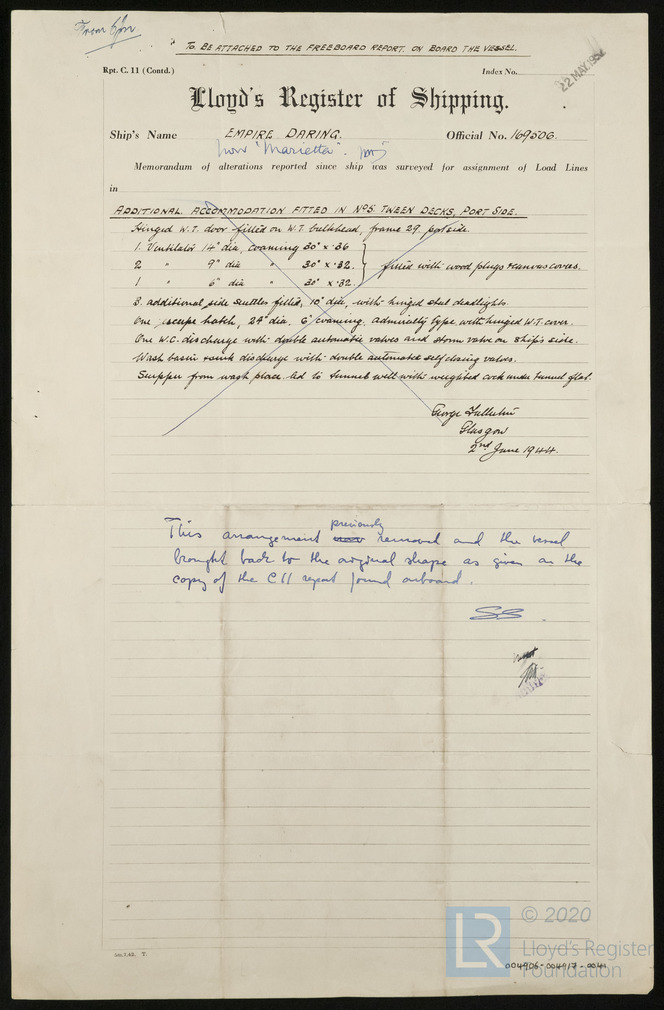 From
To BE ATTACHED TO THE FREEBOARD REPORT. ON BOARD THE VESSEL.
Rpt. C. 11 (Contd.)
Index No.
22 MAY 1952
Lloyd's Register of Shipping.
Ship's Name EMPIRE DARING. Official No. 169506.
now "Marietta".
Memorandum of alterations reported since ship was surveyed for assignment of Load Lines
in
ADDITIONAL ACCOMMODATION FITTED IN No5 TWEEN DECKS, PORT SIDE.
Hinged W.T. door fitted on W.T. bulkhead, frame 29, port side.
1. Ventilator 14" dia, coaming 30" x .36
2 " 9" dia " 30" x .32. fitted with wood plugs & canvas covers.
1 " 6" dia " 30" x .32.
8. additional side scuttles fitted, 10" dia, with hinged steel deadlights.
One escape hatch, 24" dia, 6" coaming, admiralty type with hinged W.T. cover.
One W.C. discharge with double automatic valves and storm valve on ship's side.
Wash basin & sink discharge with double automatic self closing valves.
Scupper from wash place led to tunnel well with weighted cock under tunnel flat.
George
Glasgow
2nd June 1944.
previously
This arrangement now removed and the vessel
brought back to the original shape as given on the
copy of the C11 report found onboard.
SS
© 2020
Lloyd's Register
Foundation
004906-004917-0041